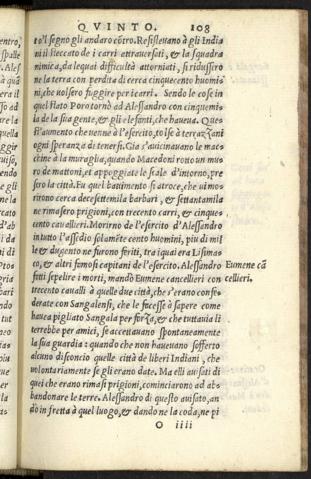 QVINTO. 108
to'l segno gli andaro cōtro. Resisteuano à gli India
ni il steccato de i carri attrauersati, & la squadra
nimica, da lequai difficultà atterriti, si ridussero
ne la terra con perdita di cerca cinquecento huomi
ni, che uolsero fuggire per i carri. Sendo le cose in
quel stato Poro tornò ad Alessandro con cinquemi-
la de la sua gente, & gli elefanti, che haueua. Que
st'aumento che uenne à l'esercito, tolse à terrazzani
ogni speranza di tenersi. Gia s'auicinauano le mac-
chine à la muraglia, quando Macedoni rotto un mu
ro de mattoni, et appoggiate le scale d'intorno, pre
sero la città. Eu quel battimento sì atroce, che ui mo-
rirono cerca decesettemila barbari, & settantamila
ne rimasero prigioni, con trecento carri, & cinque-
cento cauallieri. Morirno de l'esercito d'Alessandro
in tutto l'assedio solamēte cento huomini, piu di mil
le & dugento ne furono feriti, tra iquai era Lisima-
co, & altri famosi capitani de l'esercito. Alessandro
fatti sepelire i morti, mandò Eumene cancellieri con
trecento caualli à quelle due città, che s'erano confe
derate con Sangalensi, che le facesse à sapere come
hauea pigliato Sangala per forza, & che tuttauia li
terrebbe per amici, se accettauano spontaneamente
la sua guardia: quando che non haueuano sofferto
alcuno disconcio quelle città de liberi Indiani, che
volontariamente se gli erano date. Ma elli auisati di
quei che erano rimasi prigioni, cominciarono ad ab-
bandonare le terre. Alessandro di questo auisato, an
dò in fretta à quel luogo, & dando ne la coda, ne pi
O iiii
Eumene cā
cellieri.